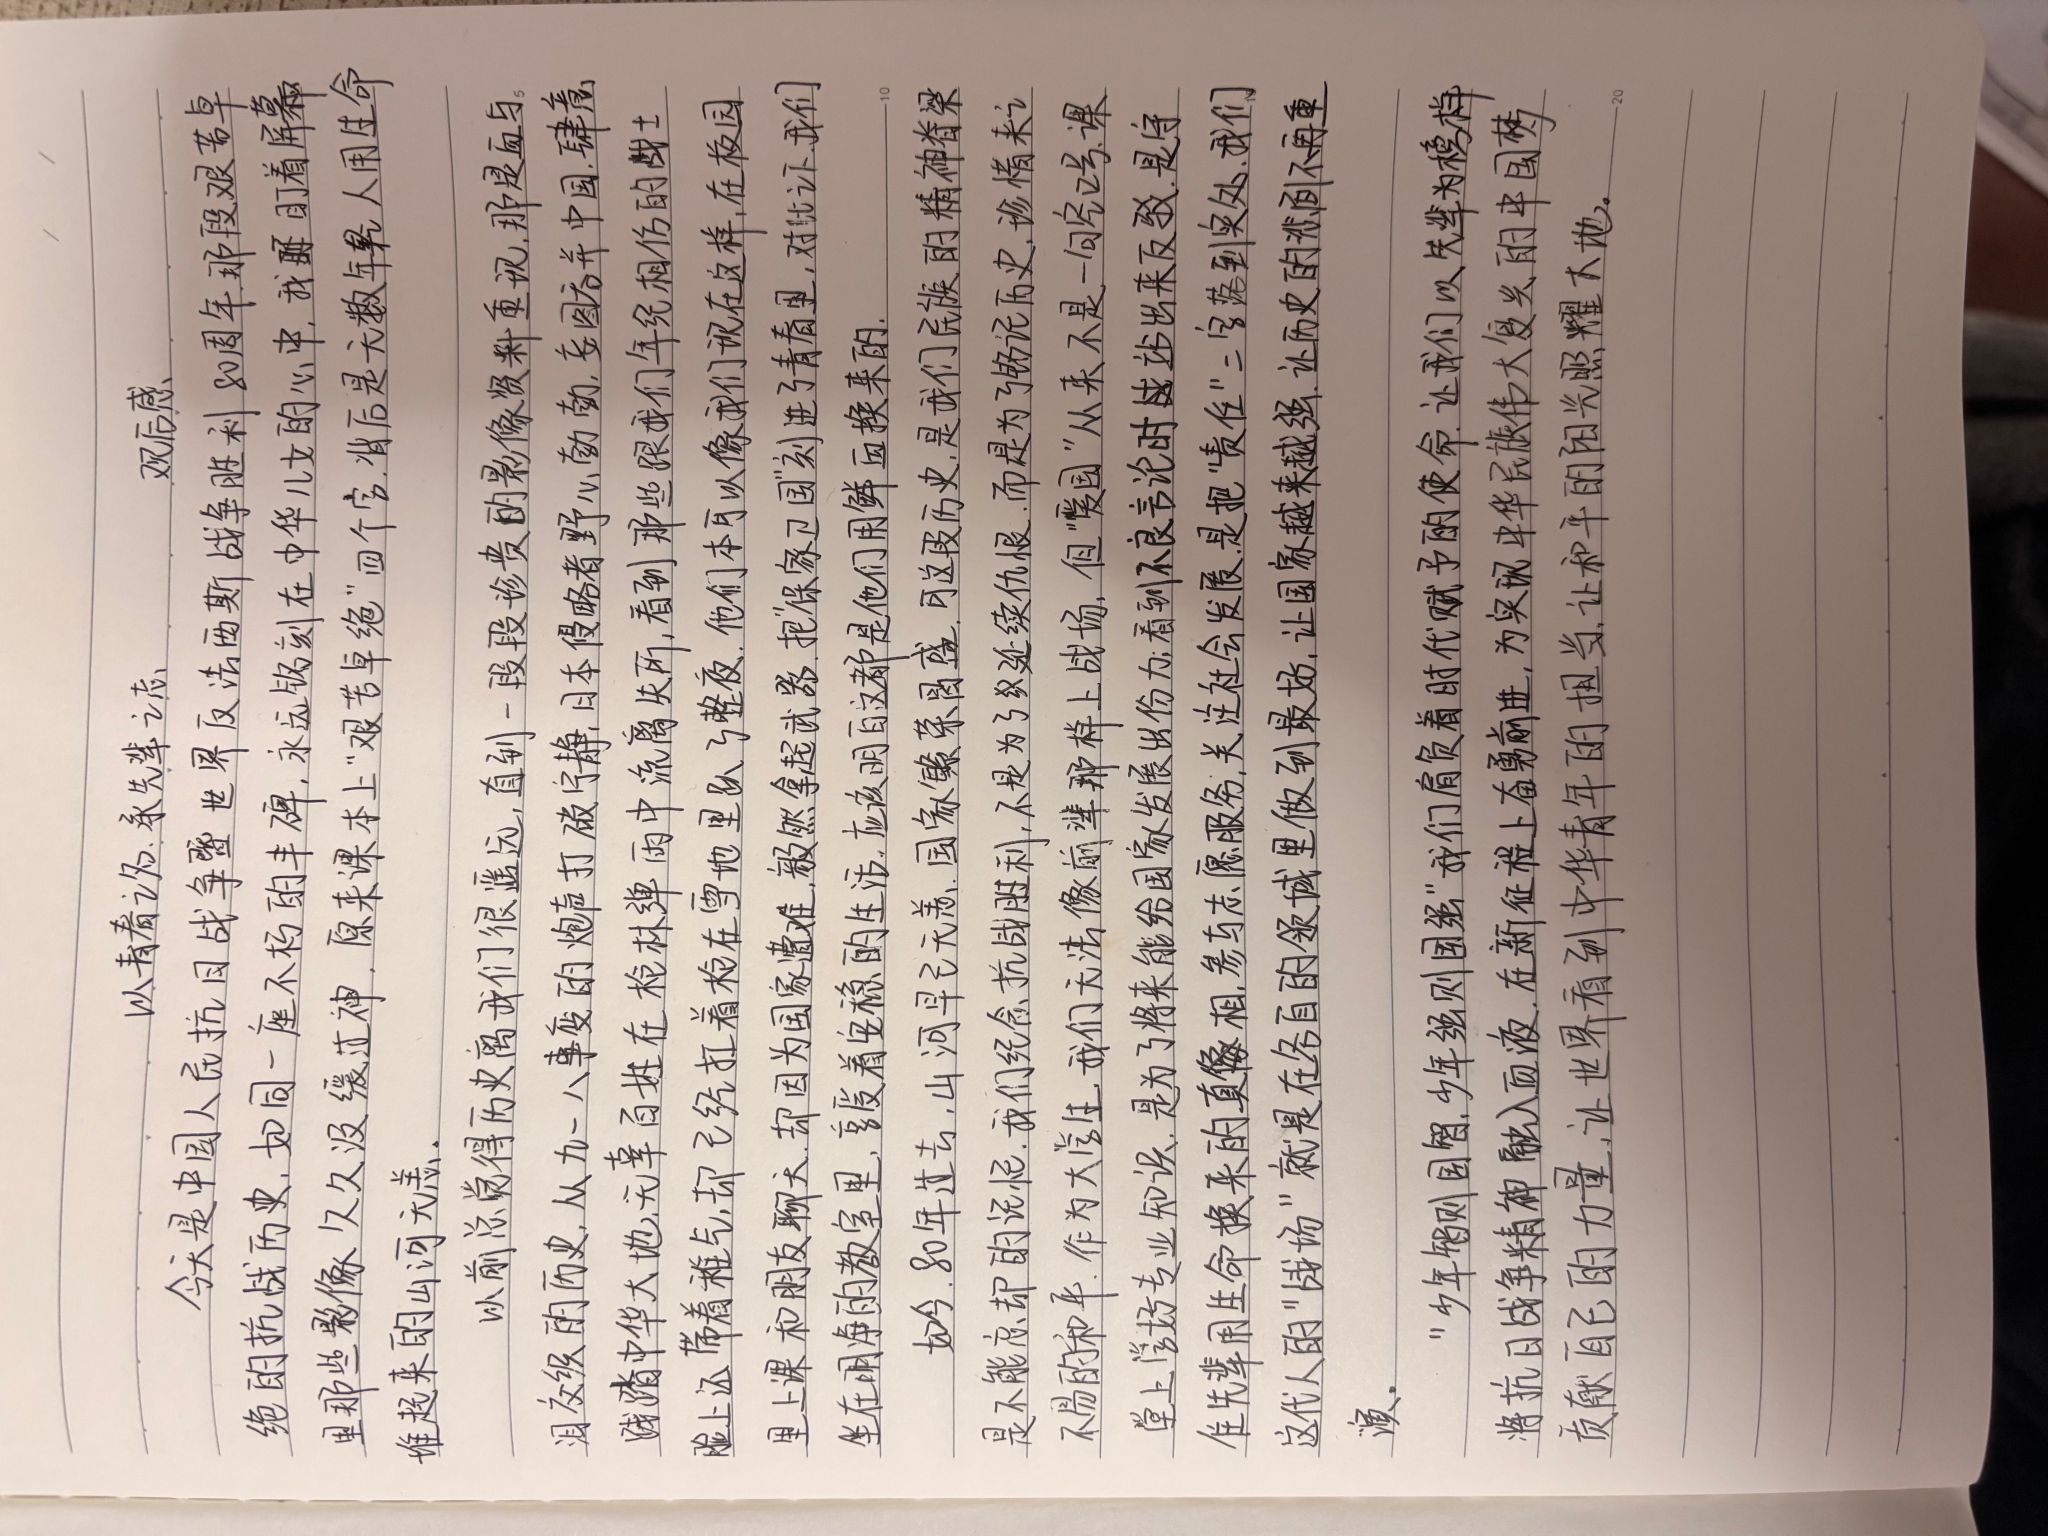 以青春之名,承先辈之志
观后感
今天是中国人民抗日战争暨世界反法西斯战争胜利80周年,那段艰苦卓
绝的抗战历史,如同一座不朽的丰碑,永远铭刻在中华儿女的心中,我盯着屏幕
里那些影像久久没缓过神,原来课本上"艰苦卓绝"四个字,背后是无数年轻人用生命
堆起来的山河无恙.
以前总觉得历史离我们很遥远,直到一段段珍贵的影像资料重现,那是血与
泪交织的历史,从九一八事变的炮声打破宁静,日本侵略者野心勃勃,妄图吞并中国,肆意
践踏中华大地,无辜百姓在枪林弹雨中流离失所,看到那些跟我们年纪相仿的战士
脸上还带着稚气,却已经扛着枪在雪地里趴了整夜,他们本可以像我们现在这样,在校园
里上课和朋友聊天,却因为国家遭难,毅然拿起武器,把"保家卫国"刻进了青春里,对比让我们
坐在明净的教室里,享受着安稳的生活,应该明白这都是他们用鲜血换来的.
如今,80年过去,山河早已无恙,国家繁荣昌盛,可这段历史,是我们民族的精神脊梁
是不能忘却的记忆.我们纪念抗战胜利,不是为了延续仇恨,而是为了铭记历史,珍惜来之
不易的和平.作为大学生,我们无法像前辈那样上战场,但"爱国"从来不是一句空口号,课
堂上学好专业知识,是为了将来能给国家发展出份力;看到不良言论时站出来反驳,是守
住先辈用生命换来的真相,参与志愿服务,关注社会发展,是把"责任"二字落到实处,我们
这代人的"战场"就是在各自的领域里做到最好,让国家越来越强,让历史的悲剧不再重
演.
"少年智则国智,少年强则国强"我们肩负着时代赋予的使命,让我们以先辈为榜样
将抗日战争精神融入血液,在新征程上奋勇前进,为实现中华民族伟大复兴的中国梦
贡献自己的力量,让世界看到中华青年的担当,让和平的阳光照耀大地。
5
10
20